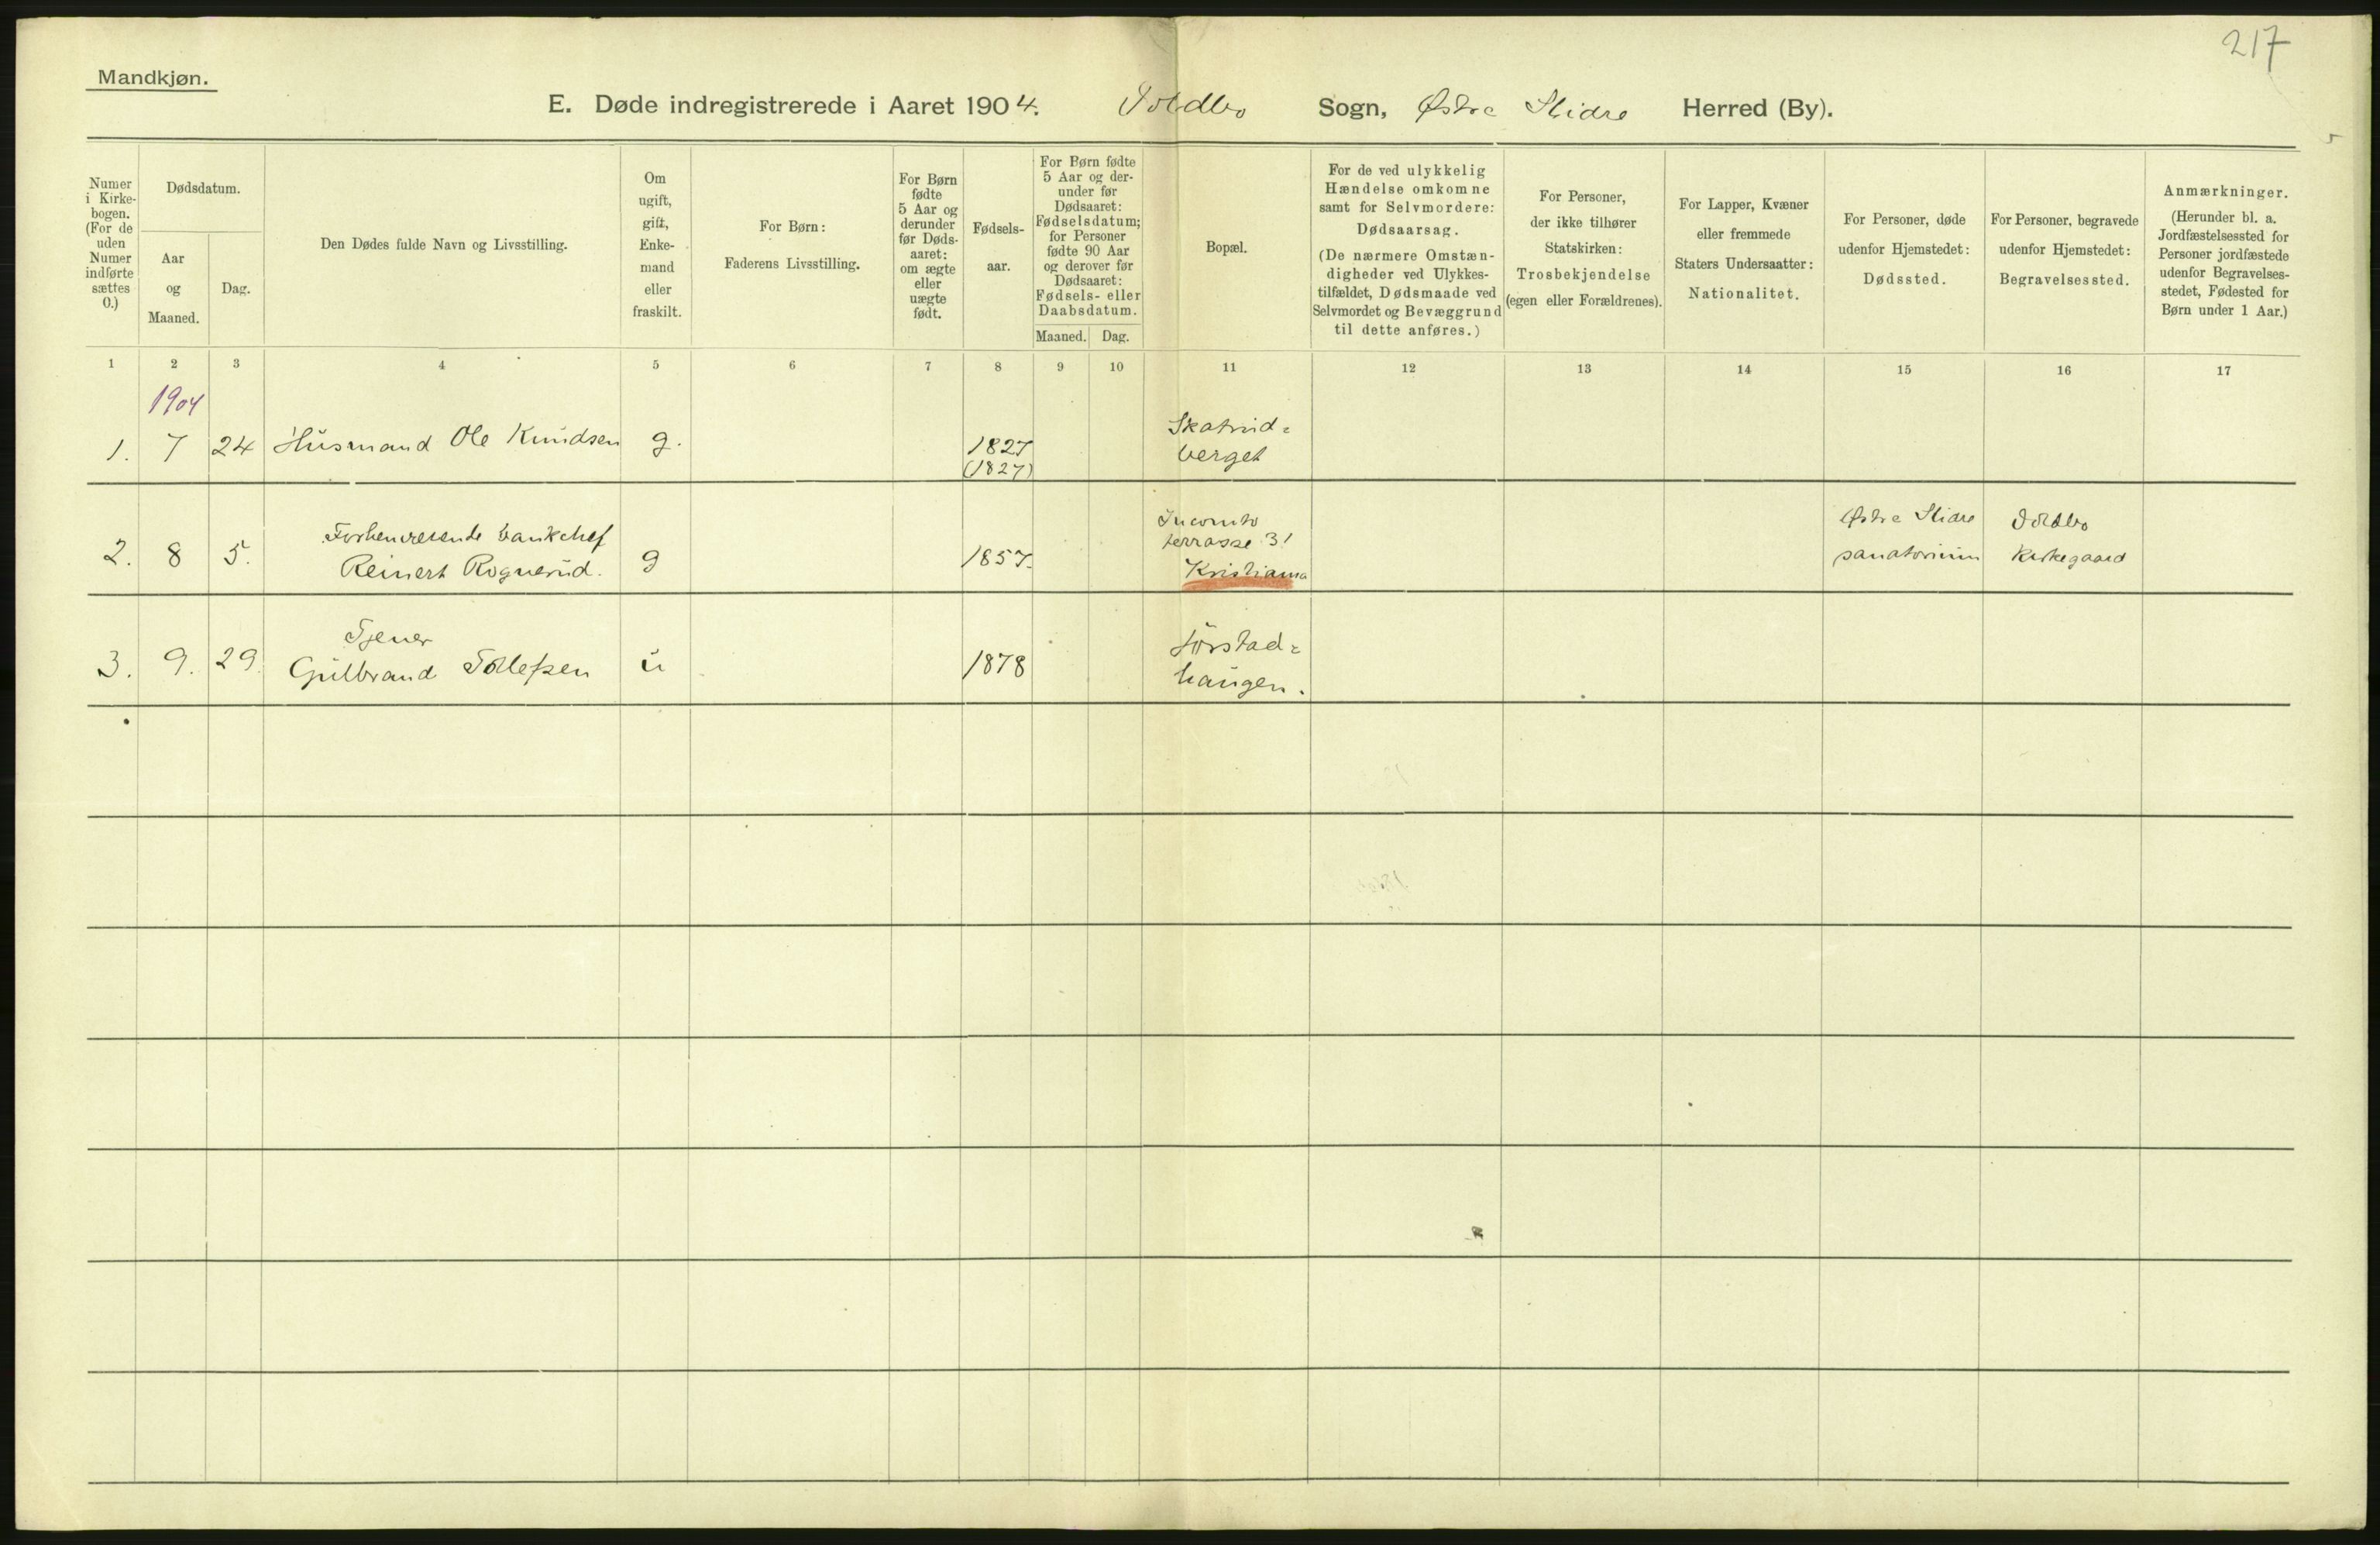 217
Mandkjøn.
E. Døde indregistrerede i Aaret 1904. Voldbo Sogn, Østre Slidre Herred (By).
Numer i Kirkebogen. (For de uden Numer indførte sættes 0.)
Dødsdatum.
Aar og Maaned.
Dag.
Den Dødes fulde Navn og Livsstilling.
Om ugift, gift, Enkemand eller fraskilt.
For Børn: Faderens Livsstilling.
For Børn fødte 5 Aar og derunder før Dødsaaret: om ægte eller uægte født.
Fødselsaar.
For Børn fødte 5 Aar og derunder før Dødsaaret: Fødselsdatum; for Personer fødte 90 Aar og derover før Dødsaaret: Fødsels- eller Daabsdatum.
Maaned. Dag.
Bopæl.
For de ved ulykkelig Hændelse omkomne samt for Selvmordere: Dødsaarsag. (De nærmere Omstændigheder ved Ulykkestilfældet, Dødsmaade ved Selvmordet og Bevæggrund til dette anføres.)
For Personer, der ikke tilhører Statskirken: Trosbekjendelse (egen eller Forældrenes).
For Lapper, Kvæner eller fremmede Staters Undersaatter: Nationalitet.
For Personer, døde udenfor Hjemstedet: Dødssted.
For Personer, begravede udenfor Hjemstedet: Begravelsessted.
Anmærkninger. (Herunder bl. a. Jordfæstelsessted for Personer jordfæstede udenfor Begravelsesstedet, Fødested for Børn under 1 Aar.)
1 2 3 4 5 6 7 8 9 10 11 12 13 14 15 16 17
1904
1. 7 24 Husmand Ole Knudsen g. 1827 (1827) Skatrud=berget
2. 8 5. Forhenværende bankchef Reinert Rognerud. g 1857. Incognito terrasse 31 Kristiania Østre Slidre sanatorium Voldbo Kirkegaard
3. 9. 29. Tjener Gulbrand Tollefsen u 1878 Jörstad=haugen.